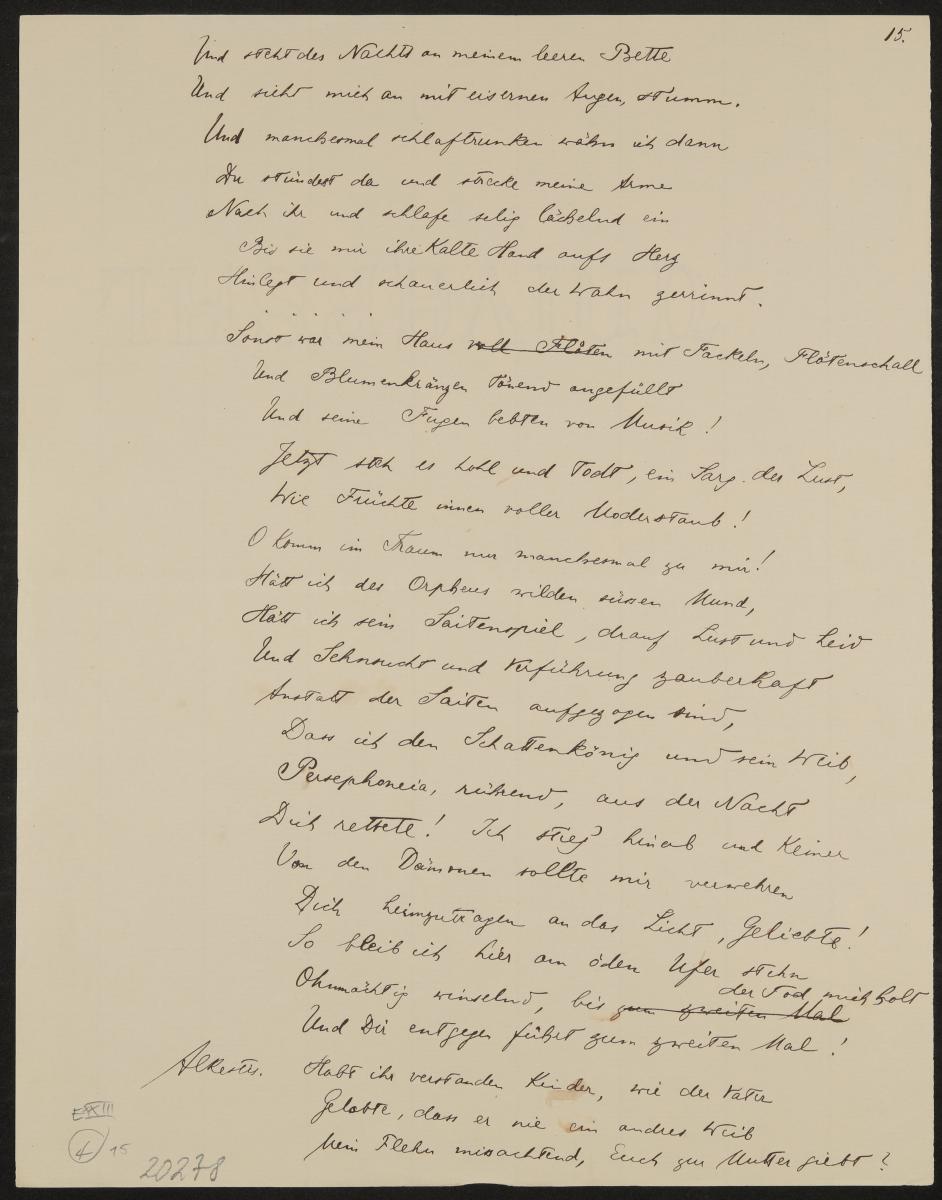 15.
Und steht des Nachts an meinem leeren Bette
Und sieht mich an mit eisernen Augen, stumm.
Und manchesmal schlaftrunken wähn ich dann
Du stündest da und strecke meine Arme
Nach ihr und schlafe selig lächelnd ein
Bis sie mir ihre Kalte Hand aufs Herz
Hinlegt und schauerlich der Wahn zerrinnt.
. . . . .
Sonst war mein Haus voll Flöten mit Fackeln, Flötenschall
Und Blumenkränzen tönend angefüllt
Und seine Fugen bebten von Musik!
Jetzt steh es hohl und todt, ein Sarg der Lust,
Wie Früchte innen voller Moderstaub!
O Komm im Traum nur manchesmal zu mir!
Hätt ich des Orpheus wilden süssen Mund,
Hätt ich sein Saitenspiel, drauf Lust und Leid
Und Sehnsucht und Verführung zauberhaft
Anstatt der Saiten aufgezogen sind,
Dass ich den Schattenkönig und sein Weib,
Persephoneia, rührend, aus der Nacht
Dich rettete! Ich stieg hinab und Keiner
Von den Dämonen sollte mir verwehren
Dich heimzutragen an das Licht, Geliebte!
So bleib ich hier am öden Ufer stehn
der Tod mich holt
Ohnmächtig winselnd, bis zum zweiten Mal
Und Dir entgegen führt zum zweiten Mal!
Alkestis. Habt ihr verstanden Kinder, wie der Vater
Gelobte, dass er nie ein andres Weib
Mein Flehn missachtend, Euch zur Mutter giebt?
E XXIII
4 15
20278